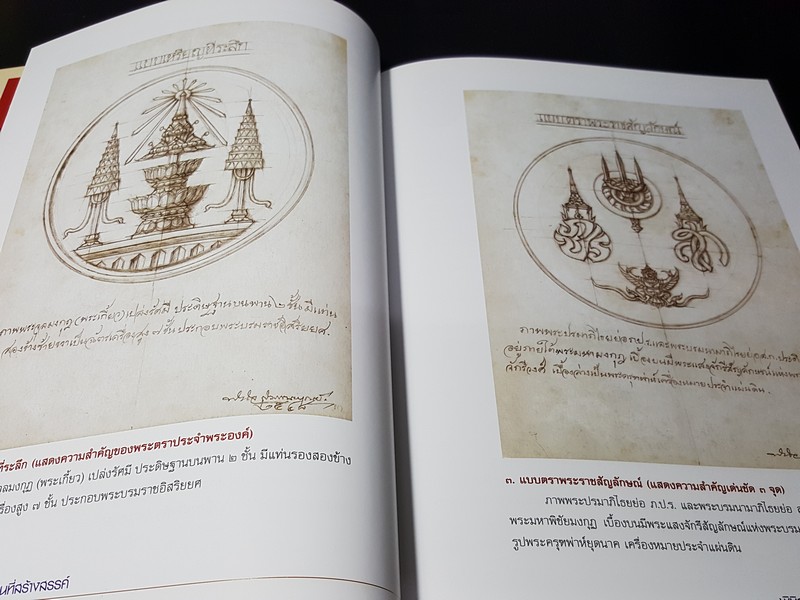 แบบเหรียญที่ระลึก
ภาพพระจุลมงกุฎ (พระเกี้ยว) เปล่งรัศมี ประดิษฐานบนพาน ๒ ชั้น มีแท่น
รองสองข้าง
ที่ระลึก (แสดงความสำคัญของพระตราประจำพระองค์)
ลมงกุฎ (พระเกี้ยว) เปล่งรัศมี ประดิษฐานบนพาน ๒ ชั้น มีแท่นรองสองข้าง
รื่องสูง ๗ ชั้น ประกอบพระบรมราชอิสริยยศ
นที่สร้างสรรค์
แบบตราพระราชสัญลักษณ์
ภาพพระปรมาภิไธยย่อ ภ.ป.ร. และพระบรมนามาภิไธยย่อ
อยู่ภายใต้พระมหามงกุฎ เบื้องบนมีพระแสงจักรีสัญลักษณ์แห่งพระ
จักรีวงศ์ เบื้องล่างเป็นพระครุฑพ่าห์เครื่องหมายประจำแผ่นดิน
๓. แบบตราพระราชสัญลักษณ์ (แสดงความสำคัญเด่นชัด ๓ จุด)
ภาพพระปรมาภิไธยย่อ ภ.ป.ร. และพระบรมนามาภิไธยย่อ ส
พระมหาพิชัยมงกุฎ เบื้องบนมีพระแสงจักรีสัญลักษณ์แห่งพระบรม
รูปพระครุฑพ่าห์ยุดนาค เครื่องหมายประจำแผ่นดิน